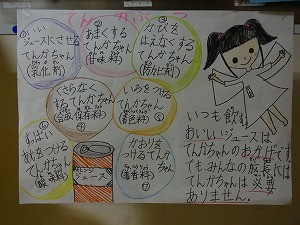 てんかぶつ
① いい
ジュースにさせる
てんかちゃん
(乳化剤)
② あまくする
てんかちゃん
(甘味料)
③ かびを
はえなくする
てんかちゃん
(防カビ剤)
④ くさらなく
するてんかちゃん
(合成保存料)
⑤ いろをつける
てんかちゃん
(着色料)
⑥ すっぱい
あじをつける
てんかちゃん
(酸味料)
⑦ かおりを
つけるてんか
ちゃん
(着香料)
オレンジ
ジュース
いつも飲む、
おいしいジュースは
てんかちゃんのおかげです。
でも、みんなの成長には
てんかちゃんは必要
ありません。